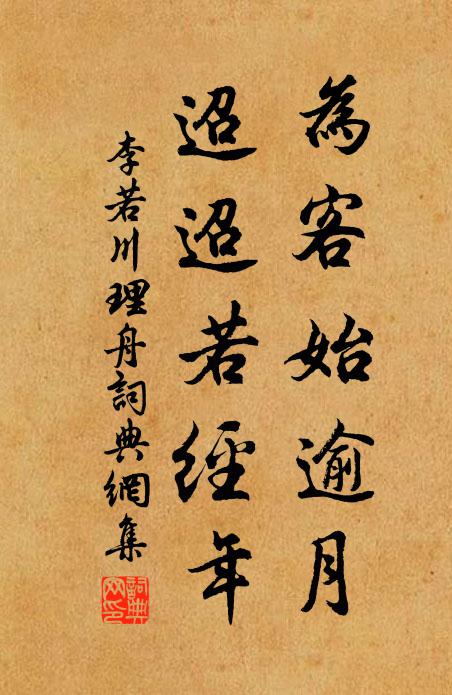 為客始逾月
迢迢若經年
李若川理舟詞典網集
詞典网印